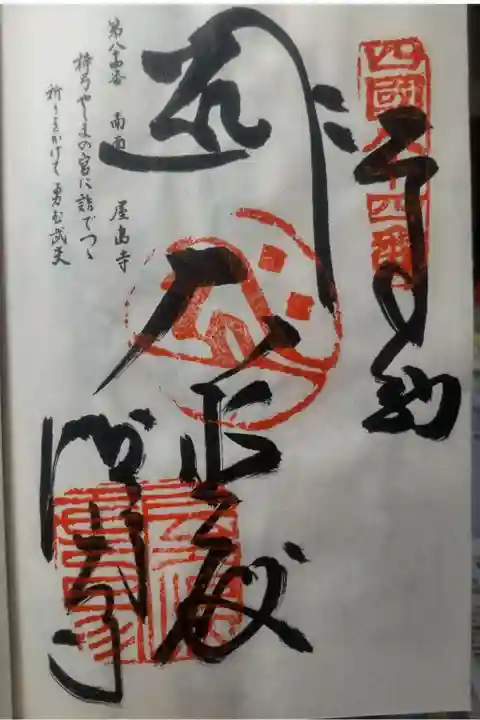 四國八十四番
奉納
大悲殿
屋島寺
第八十四番 南面山 屋島寺
梓弓やしまの宮に詣でつゝ
祈りをかけて勇む武夫